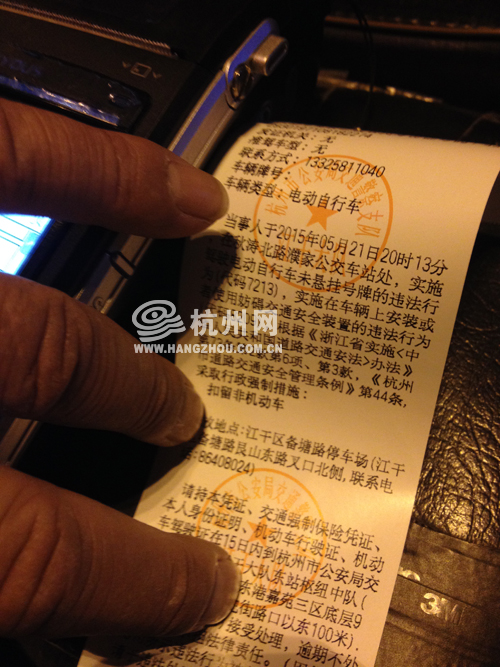 准驾车型：无
联系方式：13325811040
车辆牌号：
车辆类型：电动自行车
当事人于2015年05月21日20时13分
秋涛北路濮家公交车站处，实施
驾驶电动自行车未悬挂号牌的违法行
代码7213)，实施在车辆上安装或
使用妨碍交通安全装置的违法行为
根据《浙江省实施<中
道路交通安全法>办法》
第3款，《杭州
道路交通安全管理条例》第44条，
采取行政强制措施：
扣留非机动车
放地点：江干区备塘路停车场(江干
备塘路艮山东路叉口北侧，联系电
86408024)
请持本凭证、交通强制保险凭证、
本人身份证明、机动车行驶证、机动
车驾驶证在15日内到杭州市公安局交
大队东站枢纽中队(
东港嘉苑三区底层9
街路口以东100米)
接受处理，逾期不处
法律责任。
杭州网
WWW.HANGZHOU.COM.CN